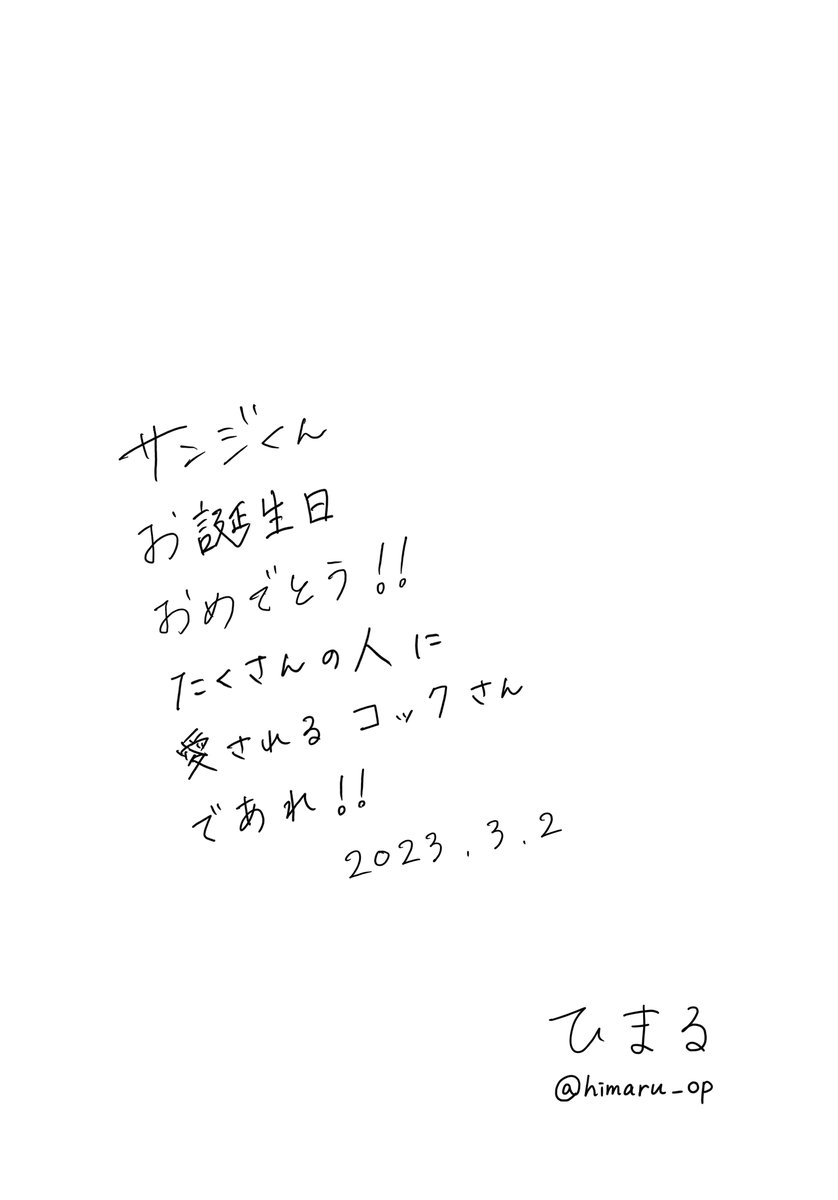 サンジくん
お誕生日
おめでとう!!
たくさんの人に
愛されるコックさん
であれ!!
2023.3.2
ひまる
@himaru_op